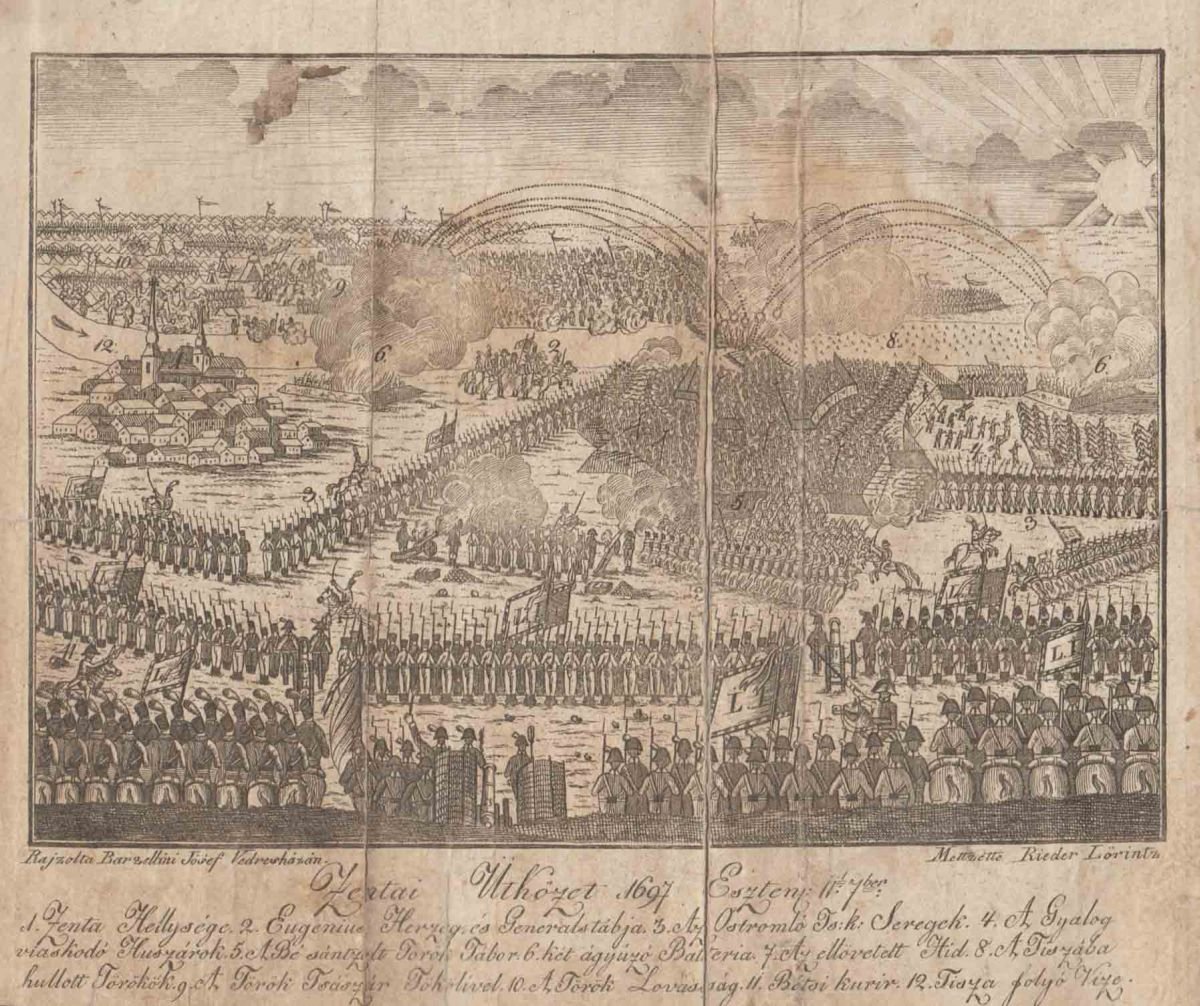 10.
9.
12.
6.
2.
8.
6.
4.
5.
3.
11.
L
L I
L
Rajzolta Barzellini Jósef Vedresházán.
Mettzette Rieder Lőrintz
Zentai Ütközet 1697 Eszten: 11t. 7ber.
1. Zenta Hellysége. 2. Eugenius Herzeg, és Generalstábja. 3. Az Ostromló Ts: k: Seregek. 4. A Gyalog
viaskodó Huszárok. 5. A Bé sántzolt Török Tábor. 6. két ágyúzó Batteria. 7. Az ellövetett Hid. 8. A Tiszába
hullott Törökök. 9. A Török Tsászár Tökölivel. 10. A Török Lovasság. 11. Bétsi kurir. 12. Tisza folyó Vize.